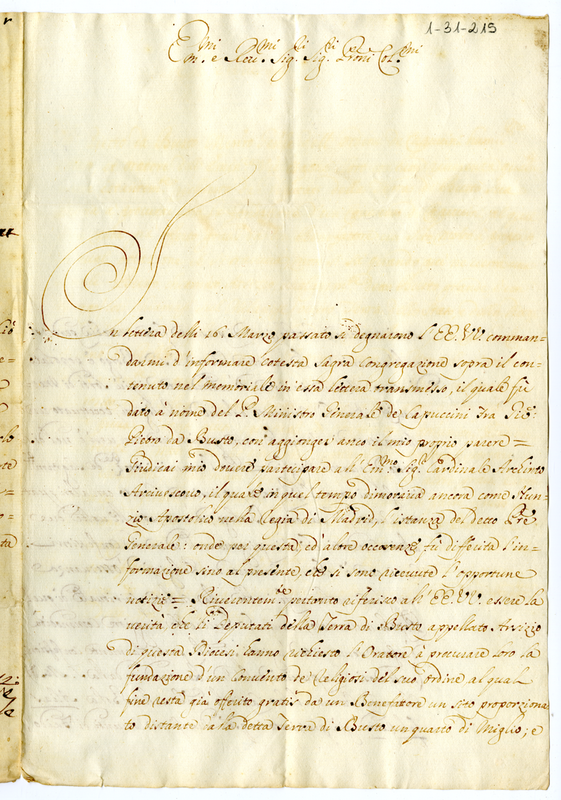 1-31-215
Em.mi e Rev.mi Sig.ri Sig.ri Proni Col.mi
In lettera delli 16. Marzo passato si degnarono l'EE.VV. comman=
darmi d'informare cotesta Sagra Congregazione sopra il con=
tenuto nel memoriale in essa lettera transmesso, il quale fù
dato à nome del P. Ministro Generale de Capuccini Fra
Pietro da Busto, con aggionger anco il mio proprio parere =
Giudicai mio dovere partecipare all'Em.mo Sig.r Cardinale Archinto
Arcivescovo, il quale in quel tempo dimorava ancora come Nun=
zio Apostolico nella Regia di Madrid, l'istanza del detto Pre
Generale: onde poi questa, ed'altre occorenze, fù differita l'in=
formazione sino al presente, che si sono ricevute l'opportune
notizie = Riverentem.te pertanto riferisco all'EE.VV. essere la
verità, che li Deputati della Terra di Busto appellato Arsizio
di questa Diocesi hanno richiesto l'Oratore à procurare loro la
fundazione d'un Convento de Religiosi del suo ordine al qual
fine resta già offerito gratis da un Benefattore un sito proporziona
to distante dalla detta Terra di Busto un quarto di Miglio; e